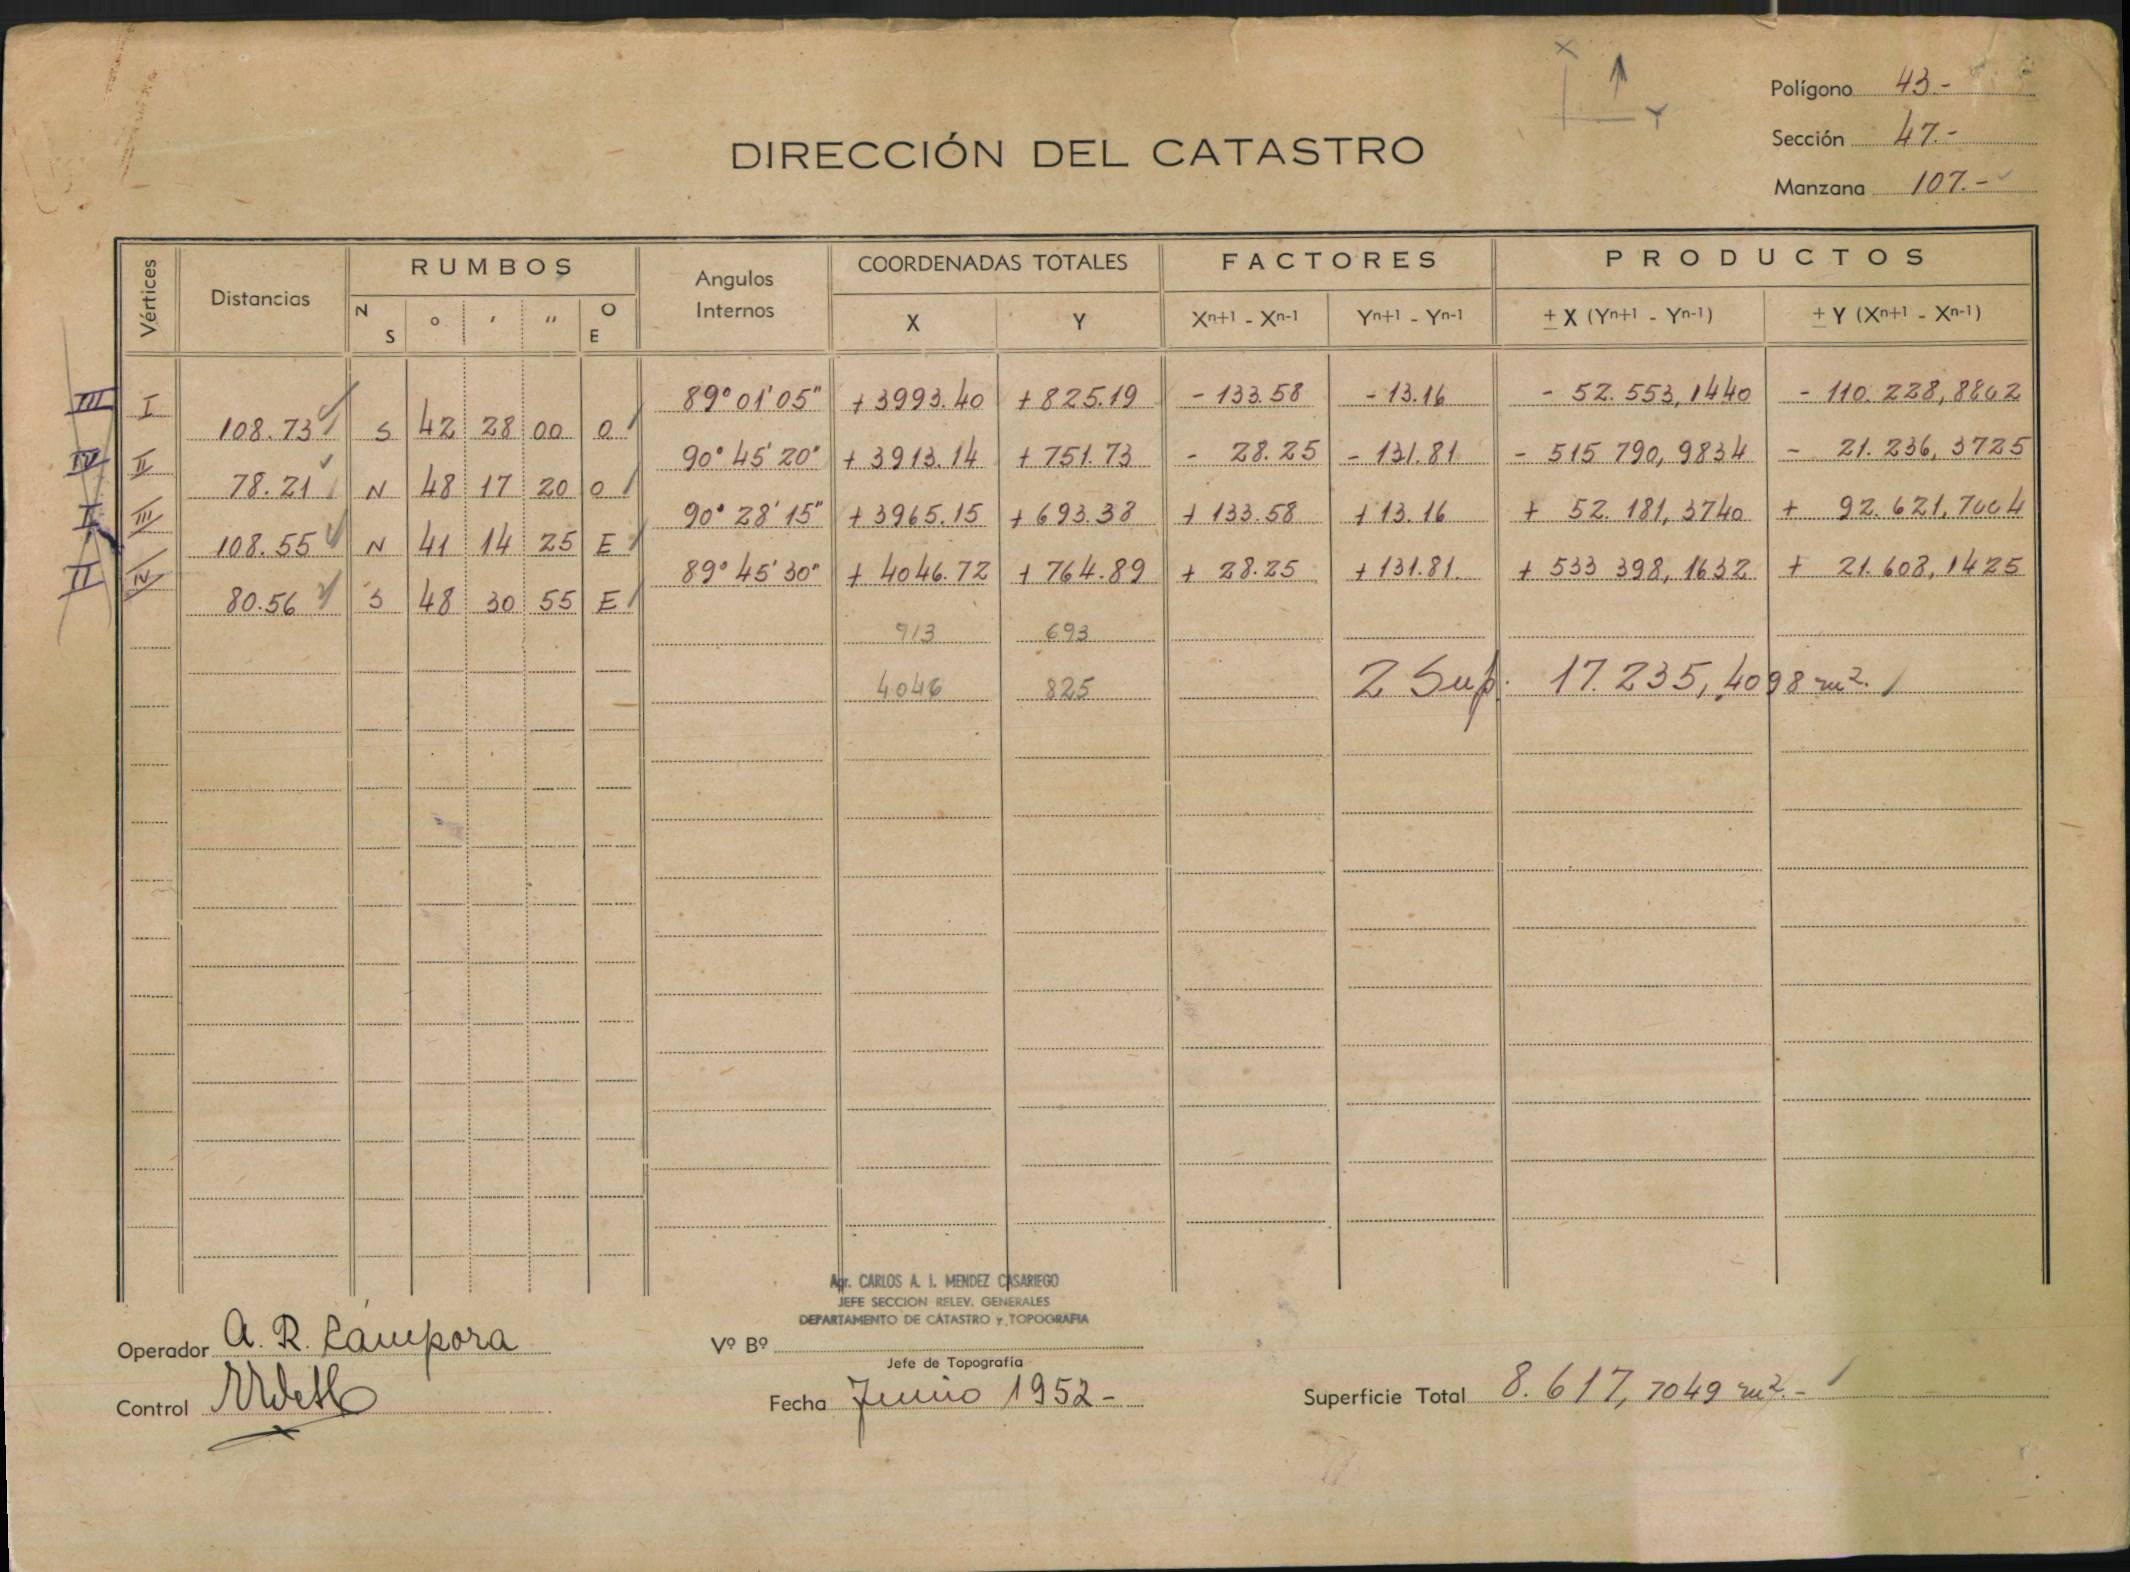 X
Y
Polígono 43.-
Sección 47.-
Manzana 107.-
DIRECCIÓN DEL CATASTRO
Vértices Distancias RUMBOS Angulos Internos COORDENADAS TOTALES FACTORES PRODUCTOS
N S ° ' '' O E X Y Xn+1 - Xn-1 Yn+1 - Yn-1 ± X (Yn+1 - Yn-1) ± Y (Xn+1 - Xn-1)
III I 89° 01' 05" + 3993.40 + 825.19 - 133.58 - 13.16 - 52.553,1440 - 110.228,8802
108.73 S 42 28 00 O
IV II 90° 45' 20" + 3913.14 + 751.73 - 28.25 - 131.81 - 515 790,9834 - 21.236,3725
78.21 N 48 17 20 O
I III 90° 28' 15" + 3965.15 + 693.38 + 133.58 + 13.16 + 52.181,3740 + 92.621,7004
108.55 N 41 14 25 E
II IV 89° 45' 30" + 4046.72 + 764.89 + 28.25 + 131.81 + 533 398,1632 + 21.608,1425
80.56 S 48 30 55 E
913 693
4046 825 2 Sup. 17.235,4098 m2.
Agr. CARLOS A. I. MENDEZ CASARIEGO
JEFE SECCION RELEV. GENERALES
DEPARTAMENTO DE CATASTRO y TOPOGRAFIA
Operador A. R. Lámpora
Vº Bº
Jefe de Topografía
Control
Fecha Junio 1952-
Superficie Total 8.617,7049 m2.-